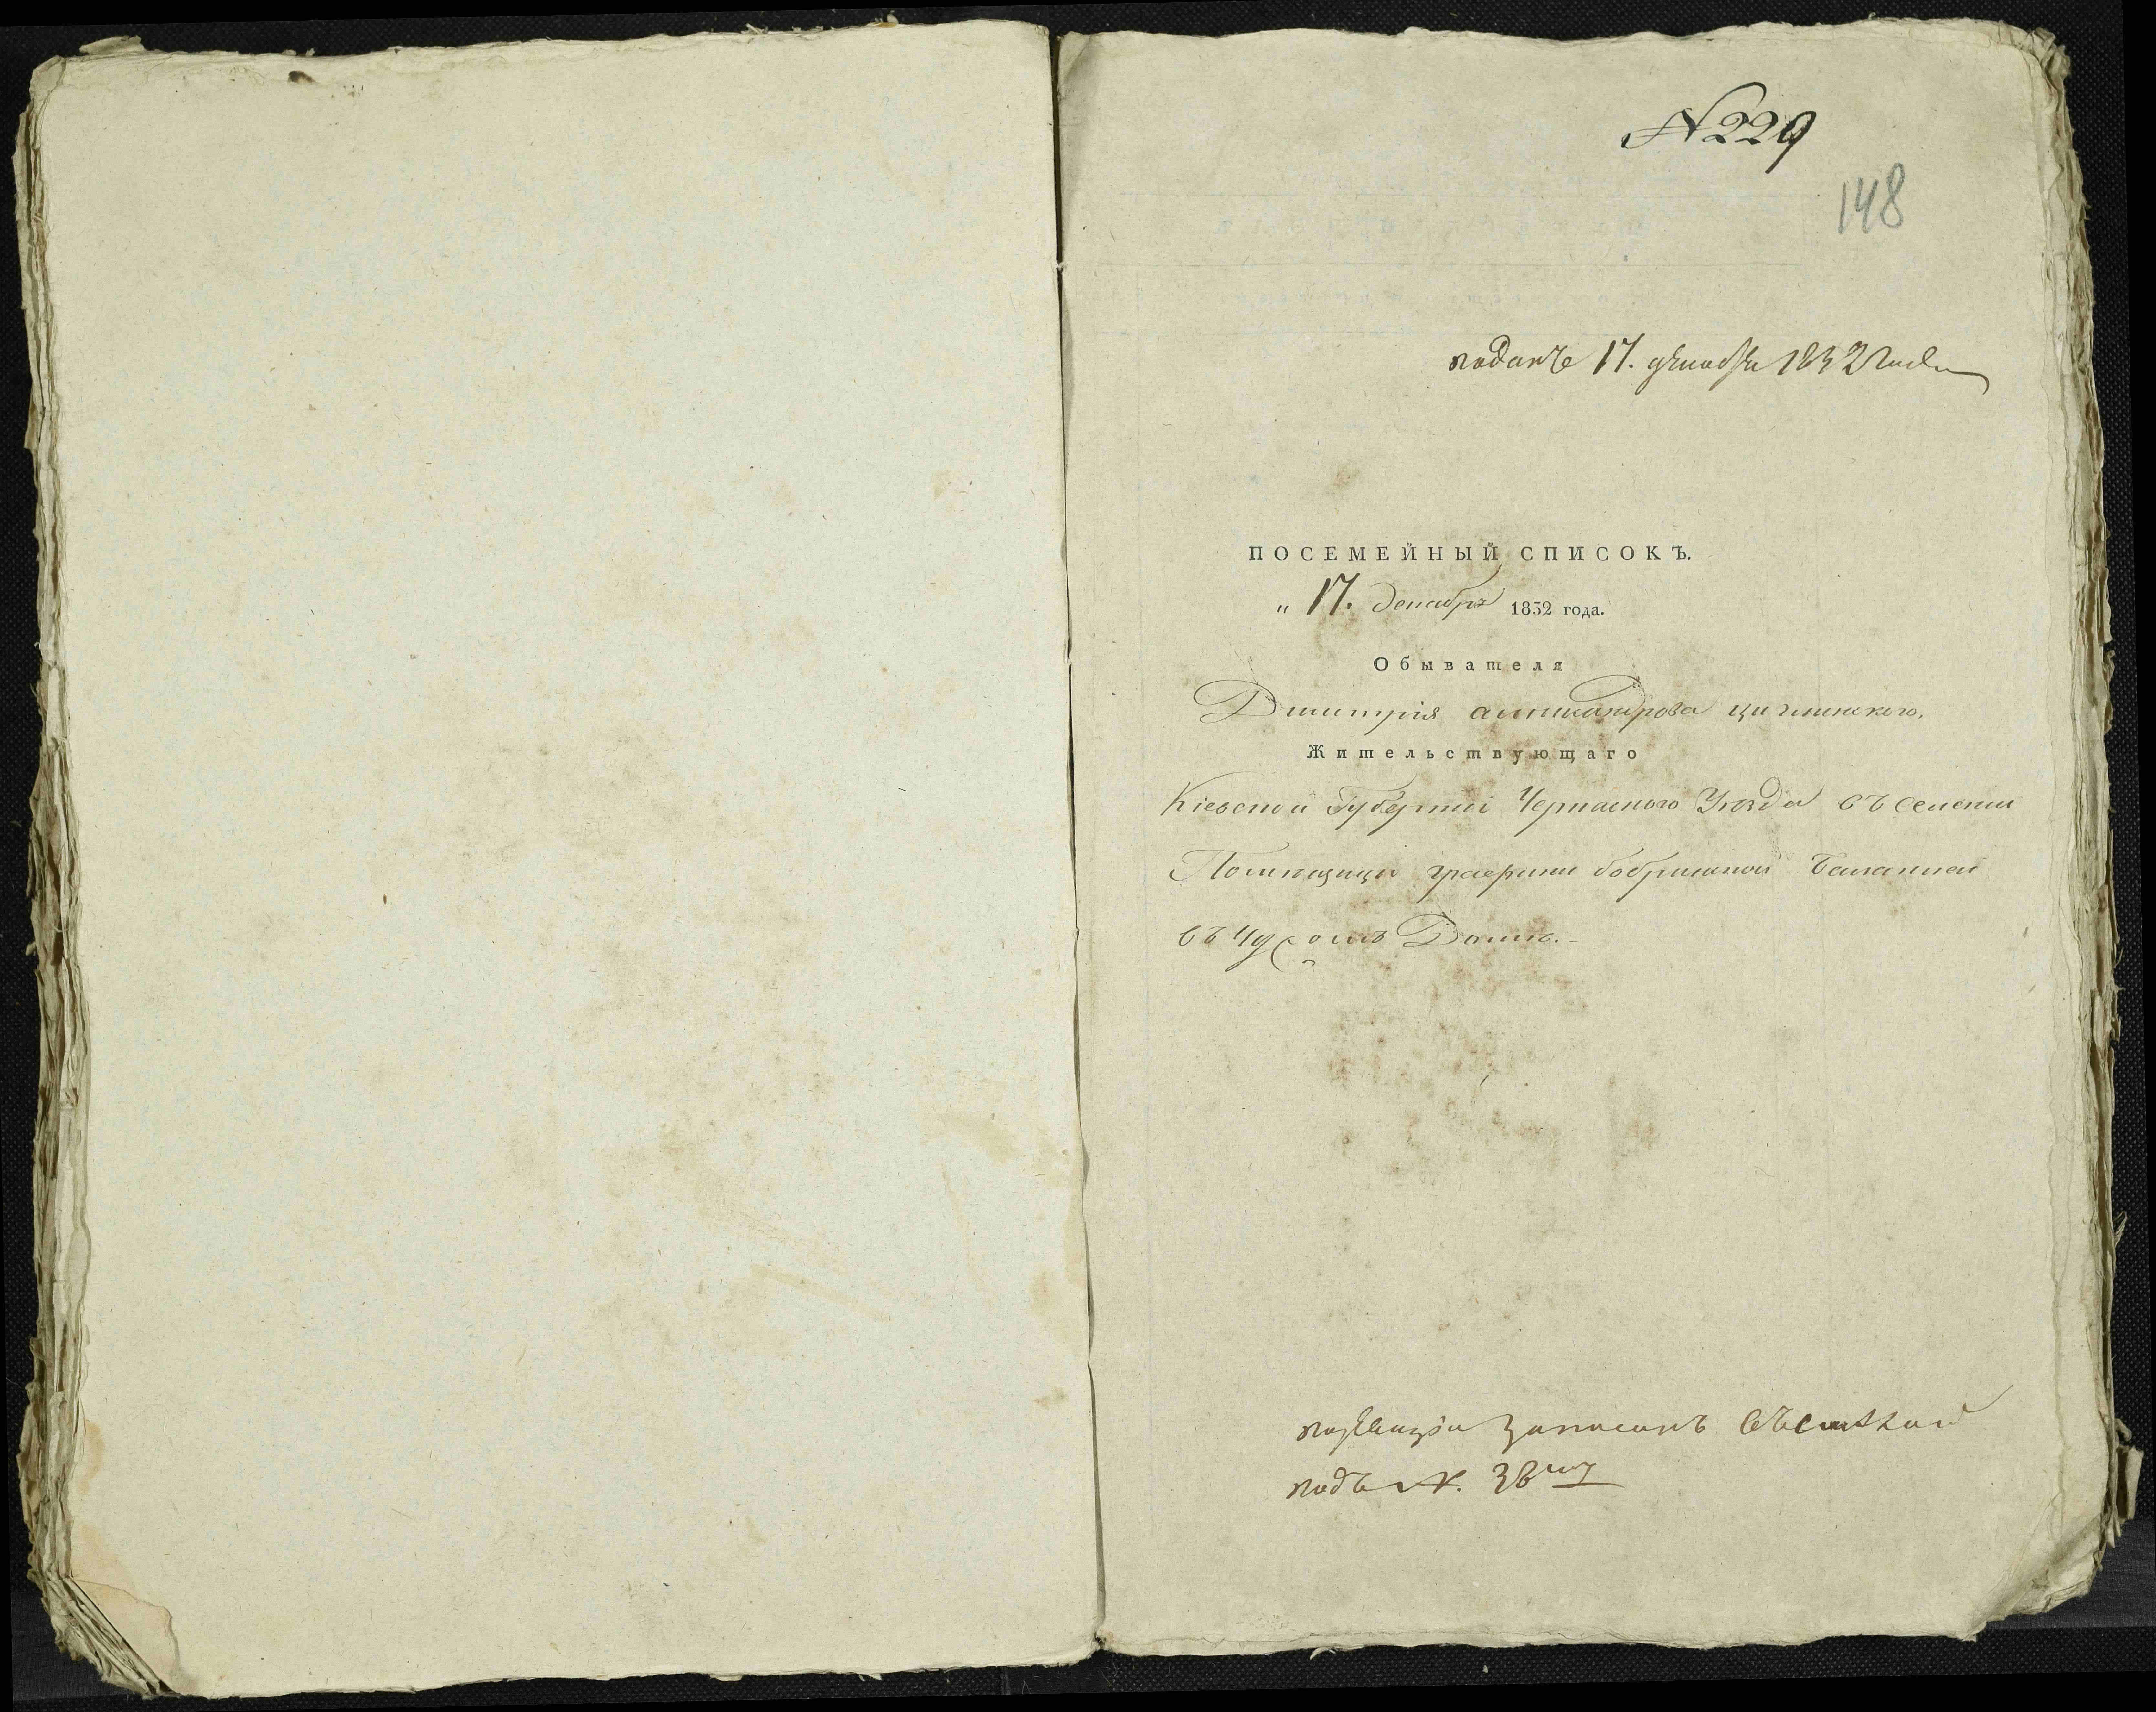 № 229
148
поданъ 17. декабря 1832 года
ПОСЕМЕЙНЫЙ СПИСОКЪ.
„ 17. декабря 1832 года.
Обывателя
Димитрія
Жительствующаго
Кіевской Губерніи Черкаского Уезда въ селении
Помещици графини бобринской Балаклеи
въ чужомъ Доме.
записанъ
подъ №. 38